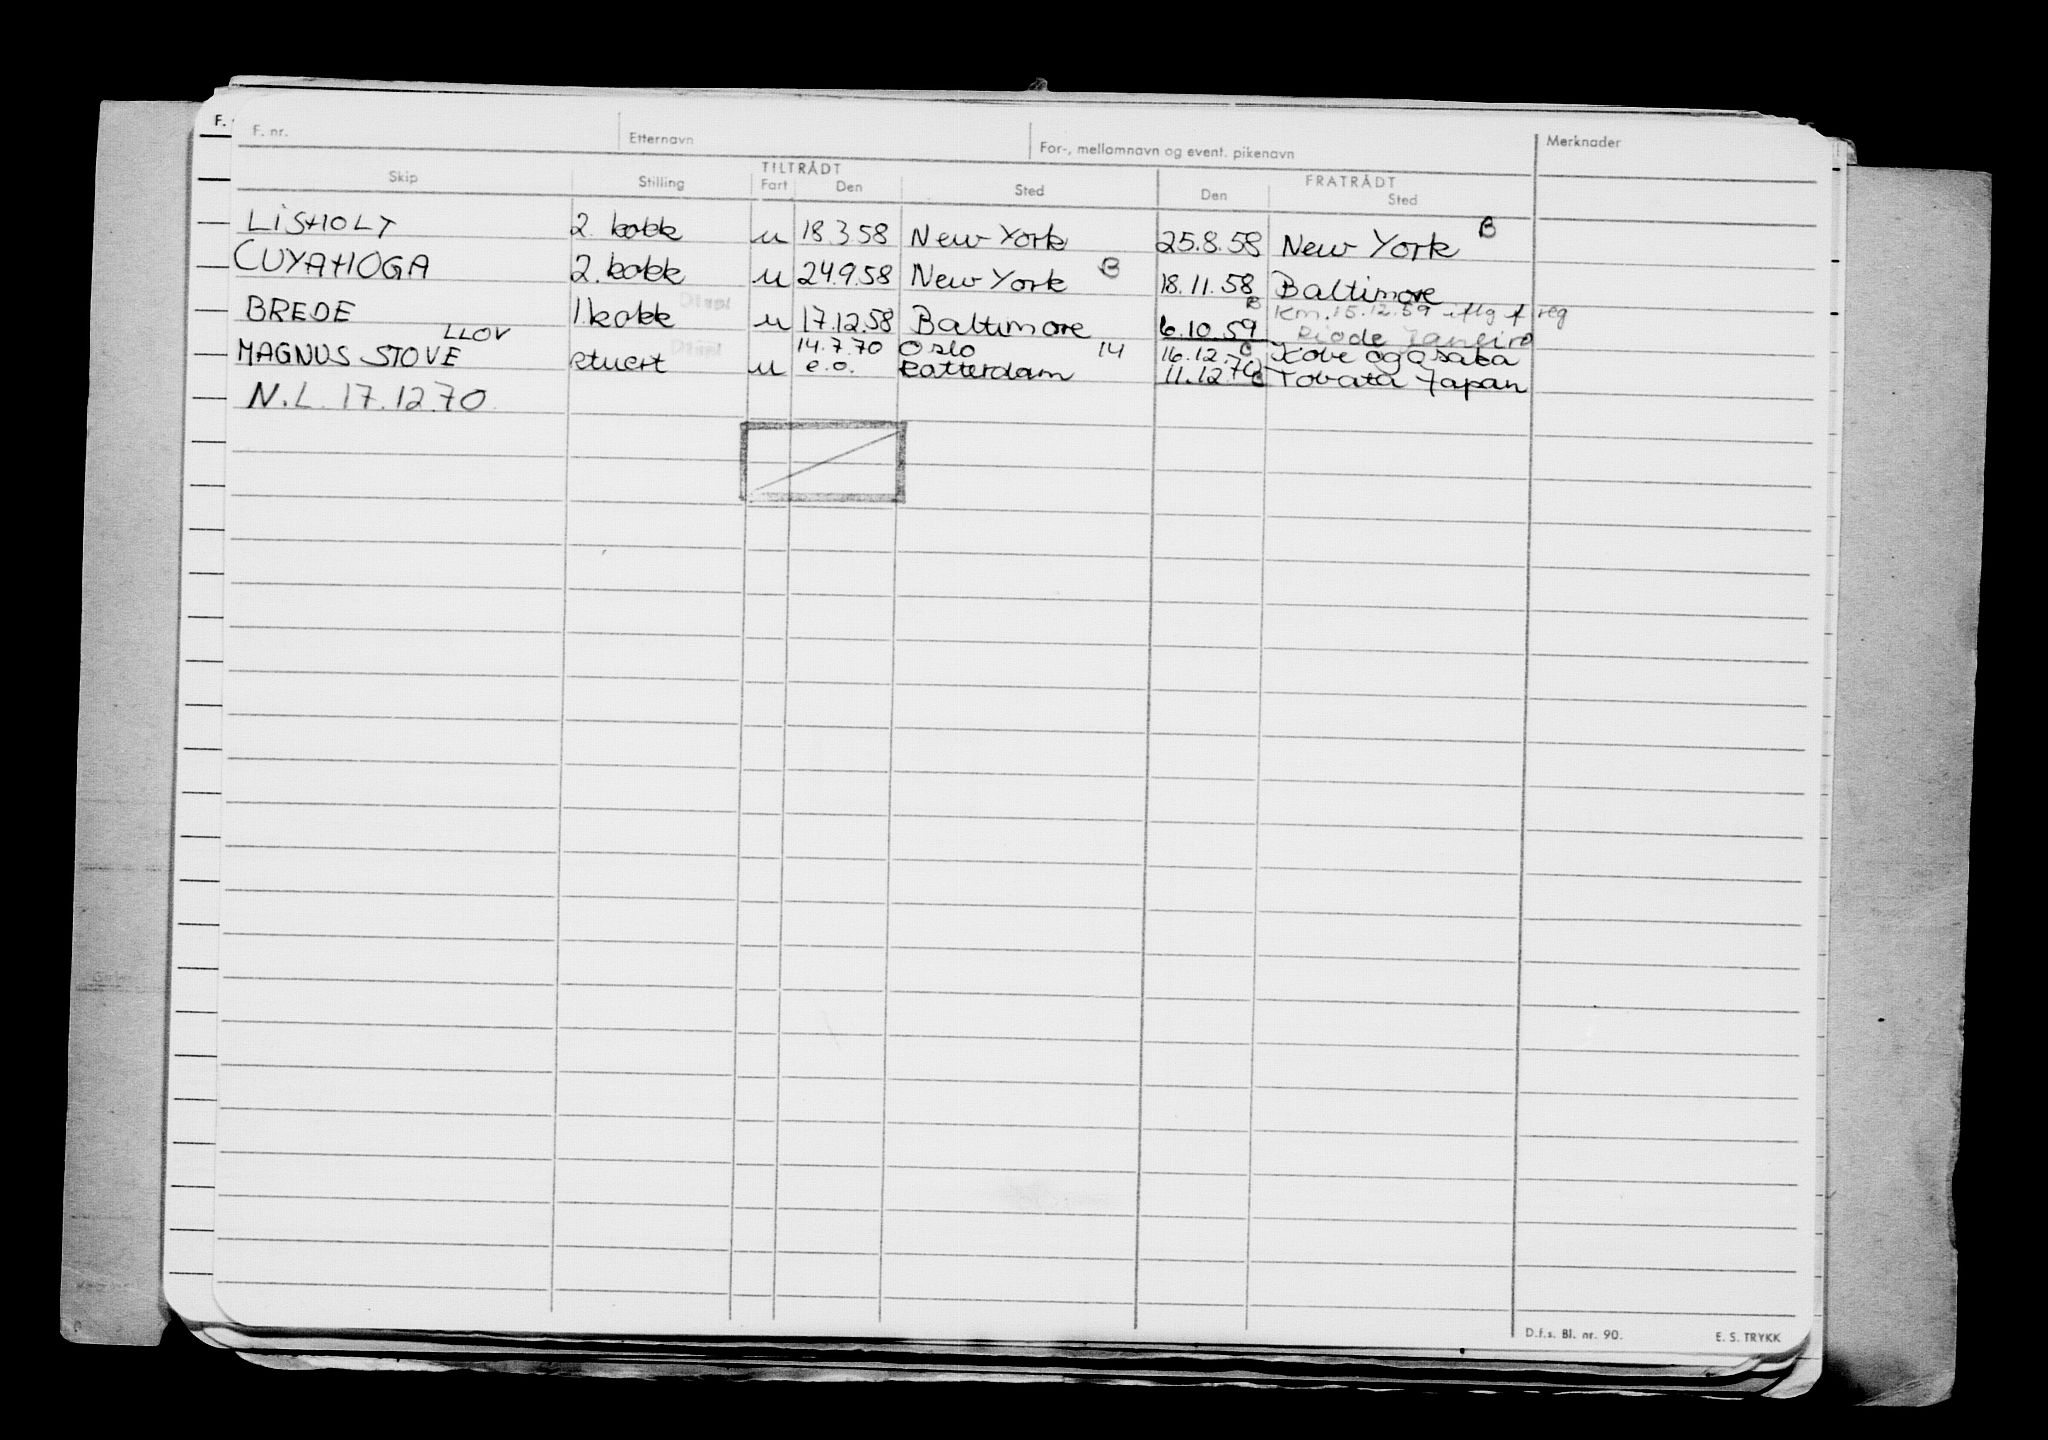 F.
F. nr. Etternavn For-, mellomnavn og event. pikenavn Merknader
TILTRÅDT FRATRÅDT
Skip Stilling Fart Den Sted Den Sted
LISHOLT 2. kokk u 18.3.58 New York 25.8.58 New York B
CUYAHOGA 2. kokk u 24.9.58 New York B 18.11.58 Baltimore
BREDE 1. kokk u 17.12.58 Baltimore 6.10.59 B Km. 15.12.59 iflg f reg
Rio de Janeiro
LLOV 14.7.70 Oslo 14 16.12. C Kobe og Osaka
MAGNUS STOVE stuert u e.o. Rotterdam 11.12.70 B Tobata Japan
N.L. 17.12.70
D.f.s. Bl. nr. 90. E. S. TRYKK